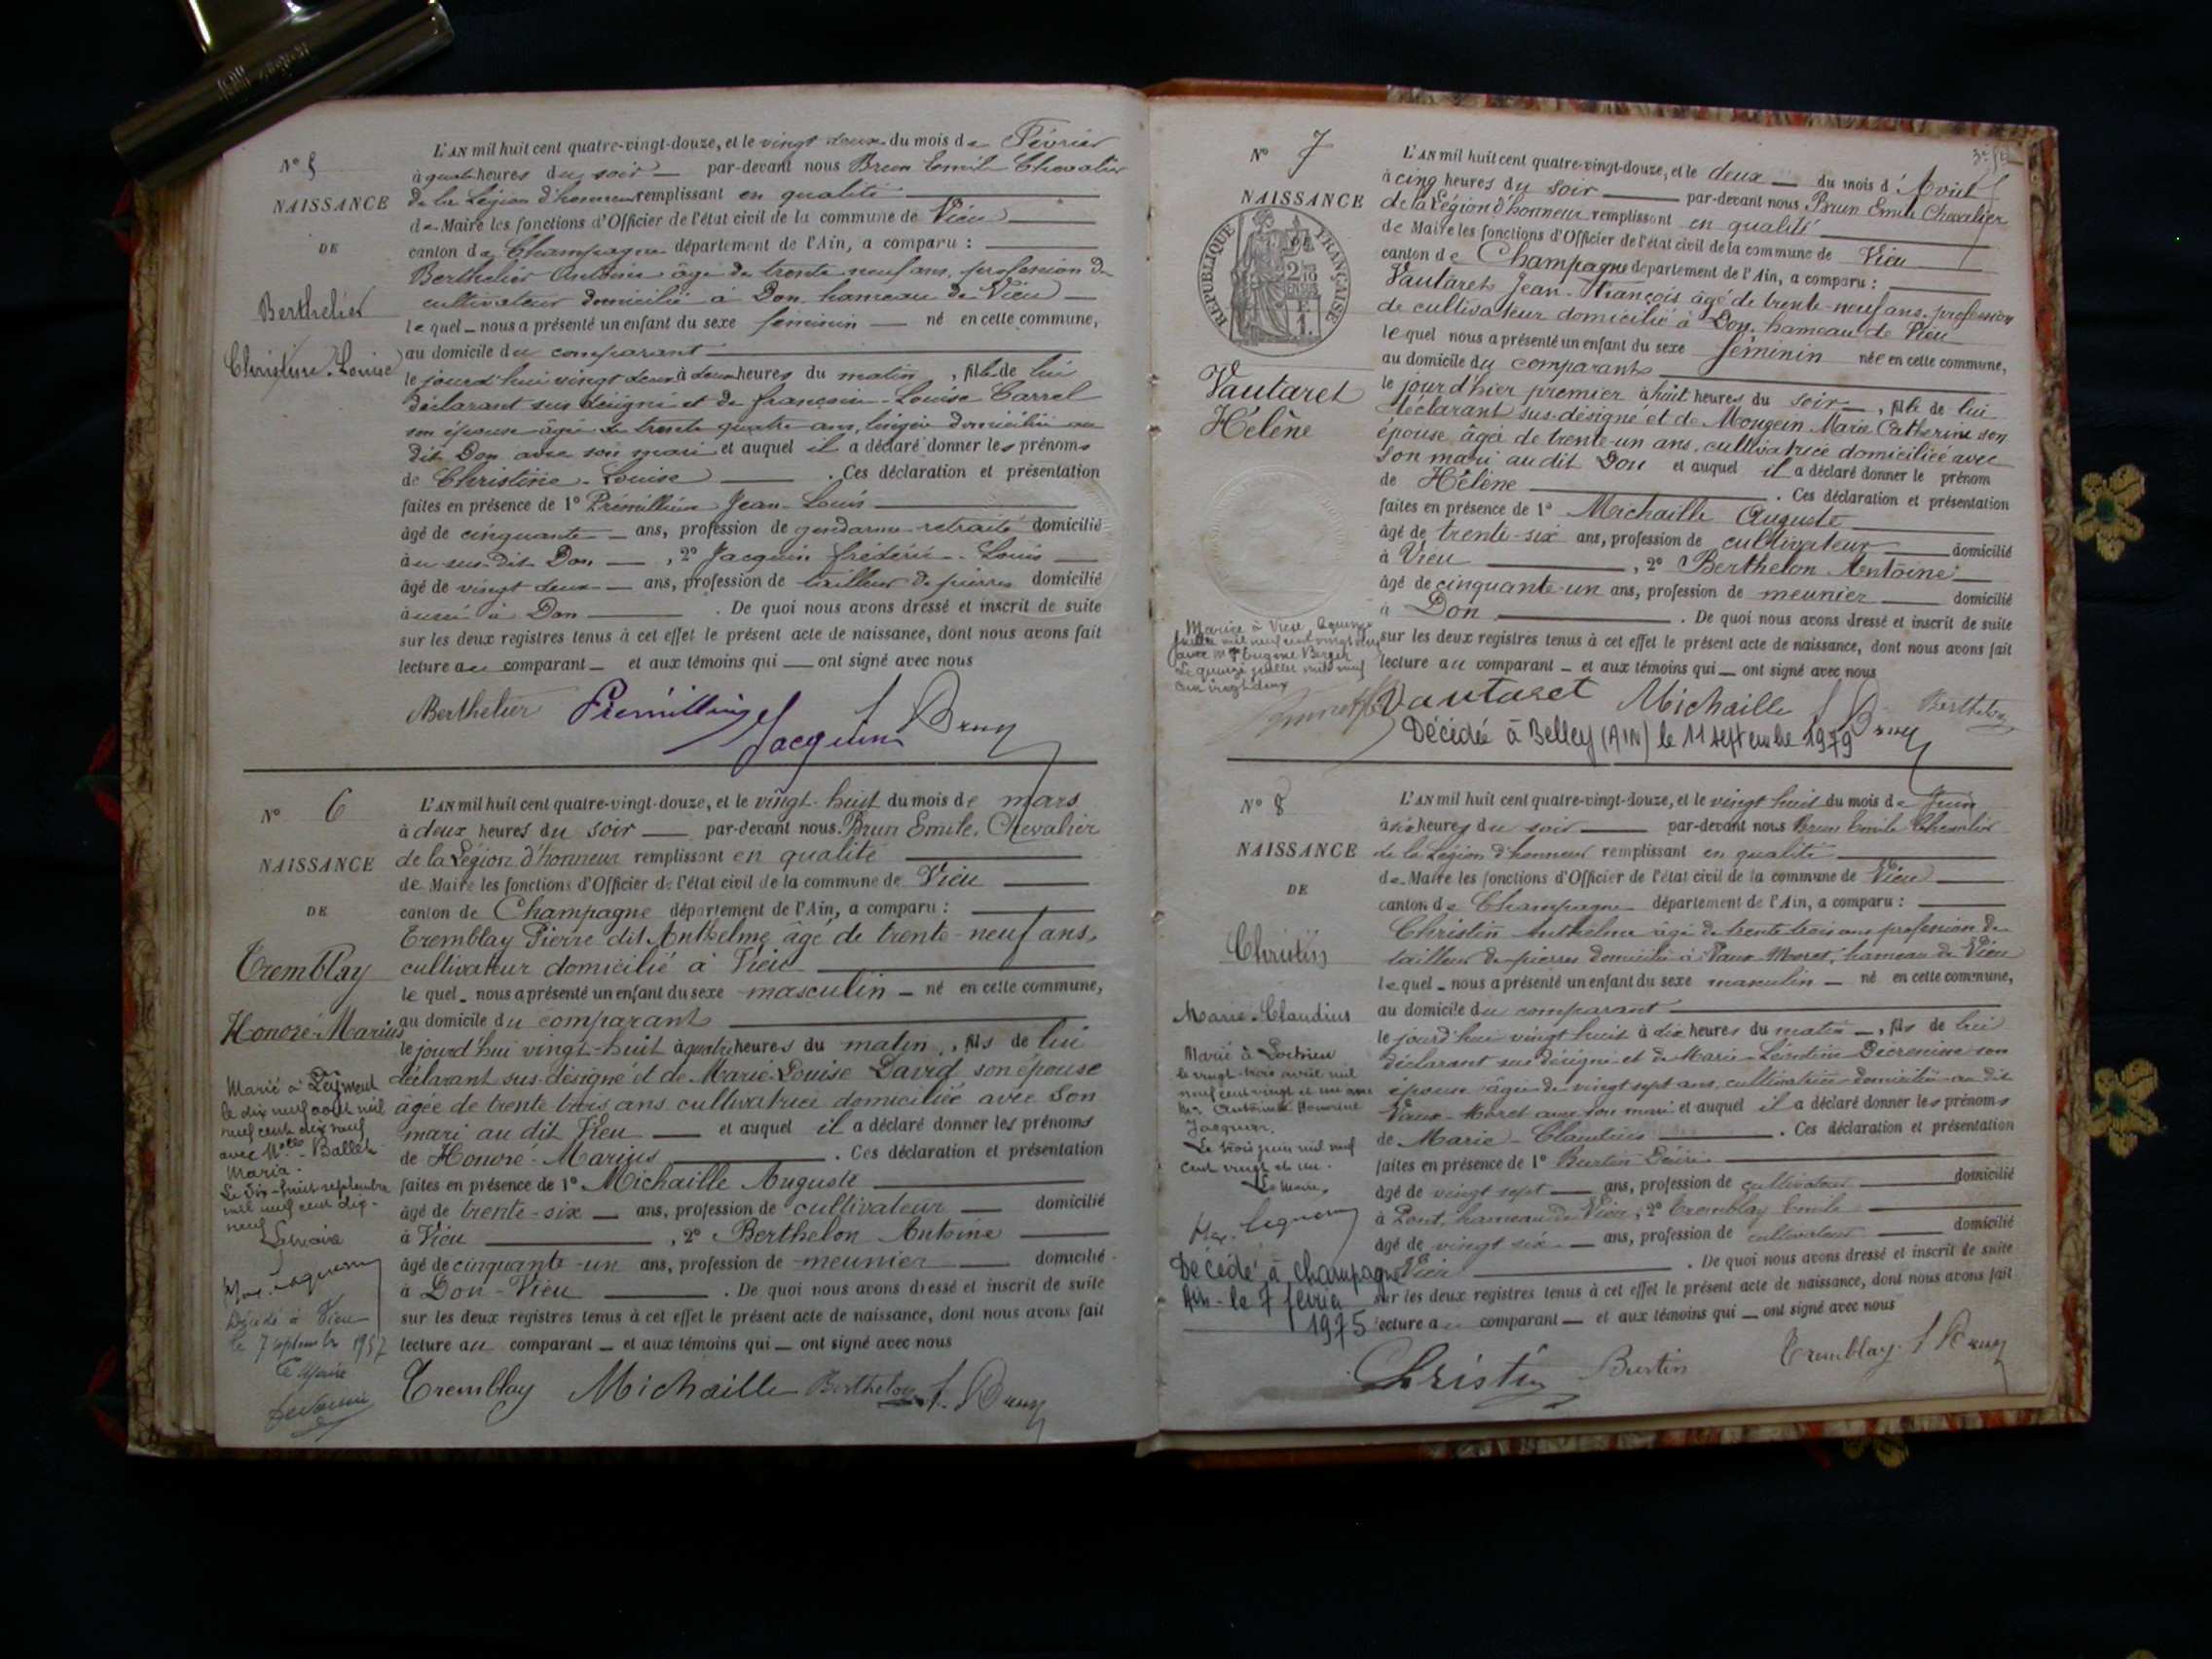 N° 5
NAISSANCE
DE
Berthelier
Christine-Louise
L'AN mil huit cent quatre-vingt-douze, et le vingt deux du mois de Février
à quatre heures du soir — par-devant nous Brun Emile Chevalier
de la Légion d'honneur remplissant en qualité
de Maire les fonctions d'Officier de l'état civil de la commune de Vieu
canton de Champagne département de l'Ain, a comparu :
Berthelier Antoine âgé de trente neuf ans, profession de
cultivateur domicilié à Don hameau de Vieu —
lequel — nous a présenté un enfant du sexe féminin — né en cette commune,
au domicile du comparant
le jourd'hui vingt deux à deux heures du matin, fille de lui
déclarant sus désigné et de françoise-Louise Carrel
son épouse âgée de trente quatre ans, lingère domiciliée au
dit Don avec son mari et auquel il a déclaré donner les prénoms
de Christine-Louise — . Ces déclaration et présentation
faites en présence de 1° Prémillieu Jean-Louis
âgé de cinquante — ans, profession de gendarme retraité domicilié
au sus-dit Don —, 2° Jacquin frédéric-Louis —
âgé de vingt deux — ans, profession de tailleur de pierres domicilié
aussi à Don — . De quoi nous avons dressé et inscrit de suite
sur les deux registres tenus à cet effet le présent acte de naissance, dont nous avons fait
lecture au comparant — et aux témoins qui — ont signé avec nous
Berthelier Prémillieu Jacquin Brun
N° 6
NAISSANCE
DE
Tremblay
Honoré-Marius
Marié à Leyment
le dix neuf août mil
neuf cent dix neuf
avec Mlle Ballet
Maria.
Le dix-huit septembre
mil neuf cent dix-
neuf
Le maire
Décédé à Vieu
le 7 septembre 1957
Le Maire
L'AN mil huit cent quatre-vingt-douze, et le vingt-huit du mois de mars
à deux heures du soir — par-devant nous Brun Emile, Chevalier
de la Légion d'honneur remplissant en qualité
de Maire les fonctions d'Officier de l'état civil de la commune de Vieu —
canton de Champagne département de l'Ain, a comparu :
Tremblay Pierre dit Anthelme âgé de trente-neuf ans,
cultivateur domicilié à Vieu
lequel — nous a présenté un enfant du sexe masculin — né en cette commune,
au domicile du comparant
le jourd'hui vingt-huit à quatre heures du matin, fils de lui
déclarant sus-désigné et de Marie Louise David son épouse
âgée de trente trois ans cultivatrice domiciliée avec son
mari au dit Vieu — et auquel il a déclaré donner les prénoms
de Honoré-Marius — . Ces déclaration et présentation
faites en présence de 1° Michaille Auguste
âgé de trente-six — ans, profession de cultivateur — domicilié
à Vieu —, 2° Berthelon Antoine
âgé de cinquante-un ans, profession de meunier — domicilié
à Don-Vieu — . De quoi nous avons dressé et inscrit de suite
sur les deux registres tenus à cet effet le présent acte de naissance, dont nous avons fait
lecture au comparant — et aux témoins qui — ont signé avec nous
Tremblay Michaille Berthelon Brun
N° 7
NAISSANCE
DE
RÉPUBLIQUE FRANÇAISE
Vautaret
Hélène
L'AN mil huit cent quatre-vingt-douze, et le deux — du mois d'Avril
à cinq heures du soir — par-devant nous Brun Emile Chevalier
de la Légion d'honneur remplissant en qualité
de Maire les fonctions d'Officier de l'état civil de la commune de Vieu
canton de Champagne département de l'Ain, a comparu :
Vautaret Jean-François âgé de trente-neuf ans, profession
de cultivateur domicilié à Don, hameau de Vieu
lequel nous a présenté un enfant du sexe féminin née en cette commune,
au domicile du comparant
le jour d'hier premier à huit heures du soir —, fille de lui
déclarant sus-désigné et de Mougein Marie Catherine son
épouse âgée de trente-un ans, cultivatrice domiciliée avec
son mari audit Don et auquel il a déclaré donner le prénom
de Hélène — . Ces déclaration et présentation
faites en présence de 1° Michaille Auguste
âgé de trente-six ans, profession de cultivateur — domicilié
à Vieu —, 2° Berthelon Antoine —
âgé de cinquante-un ans, profession de meunier — domicilié
à Don — . De quoi nous avons dressé et inscrit de suite
sur les deux registres tenus à cet effet le présent acte de naissance, dont nous avons fait
lecture au comparant — et aux témoins qui — ont signé avec nous
Mariée à Vieu le quinze
juillet mil neuf cent vingt deux
avec Mr Eugène Berger
Le quinze juillet mil neuf
cent vingt deux
Vautaret Michaille Brun Berthelon
Décédée à Belley (AIN) le 11 septembre 1979
N° 8
NAISSANCE
DE
Christin
Marie-Claudius
Marié à Lochieu
le vingt-trois avril mil
neuf cent vingt et un avec
Antoinette
Jacquier.
Le trois juin mil neuf
cent vingt et un.
Le Maire,
Décédé à Champagne
Ain - le 7 février
1975
L'AN mil huit cent quatre-vingt-douze, et le vingt huit du mois de Juin
à six heures du soir — par-devant nous Brun Emile Chevalier
de la Légion d'honneur remplissant en qualité
de Maire les fonctions d'Officier de l'état civil de la commune de Vieu —
canton de Champagne département de l'Ain, a comparu :
Christin Anthelme âgé de trente trois ans profession de
tailleur de pierres domicilié à Vaux-Moret, hameau de Vieu
lequel — nous a présenté un enfant du sexe masculin — né en cette commune,
au domicile du comparant
le jourd'hui vingt huit à dix heures du matin —, fils de lui
déclarant sus désigné et de Marie-Léontine son
épouse âgée de vingt sept ans, cultivatrice domiciliée au dit
Vaux-Moret avec son mari et auquel il a déclaré donner les prénoms
de Marie-Claudius — . Ces déclaration et présentation
faites en présence de 1° Burtin
âgé de vingt sept — ans, profession de cultivateur — domicilié
à Pont, hameau de Vieu, 2° Tremblay Emile
âgé de vingt six — ans, profession de cultivateur — domicilié
à Vieu — . De quoi nous avons dressé et inscrit de suite
sur les deux registres tenus à cet effet le présent acte de naissance, dont nous avons fait
lecture au comparant — et aux témoins qui — ont signé avec nous
Christin Burtin Tremblay Brun